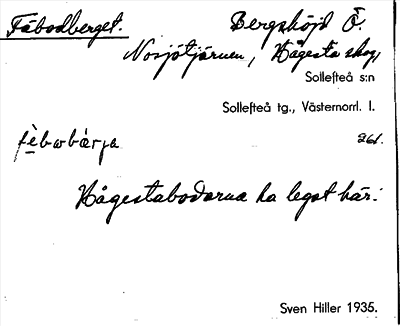 Fäbodberget. Bergshöjd Ö.
Nosjötjärnen, Hågesta skog,
Sollefteå s:n
Sollefteå tg., Västernorrl. l.
fè̱bωbárja 261.
Hågestabodarna ha legat här.
Sven Hiller 1935.